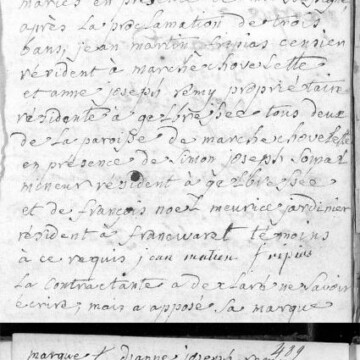 mariés en présence de
après la proclamation de trois
bans, jean martin fripias censier
résident à marchehovelette
et anne joseph remy propriétaire
résidente à gelbressée tous deux
de la paroisse de marchehovelette
en présence de simon joseph
mineur résident à gelbressée
et de françois noel meurice jardinier
résident à francwaret témoins
à ce requis jean fripias
la contractante a déclaré ne savoir
écrire, mais a apposé sa marque
marque † d'anne joseph